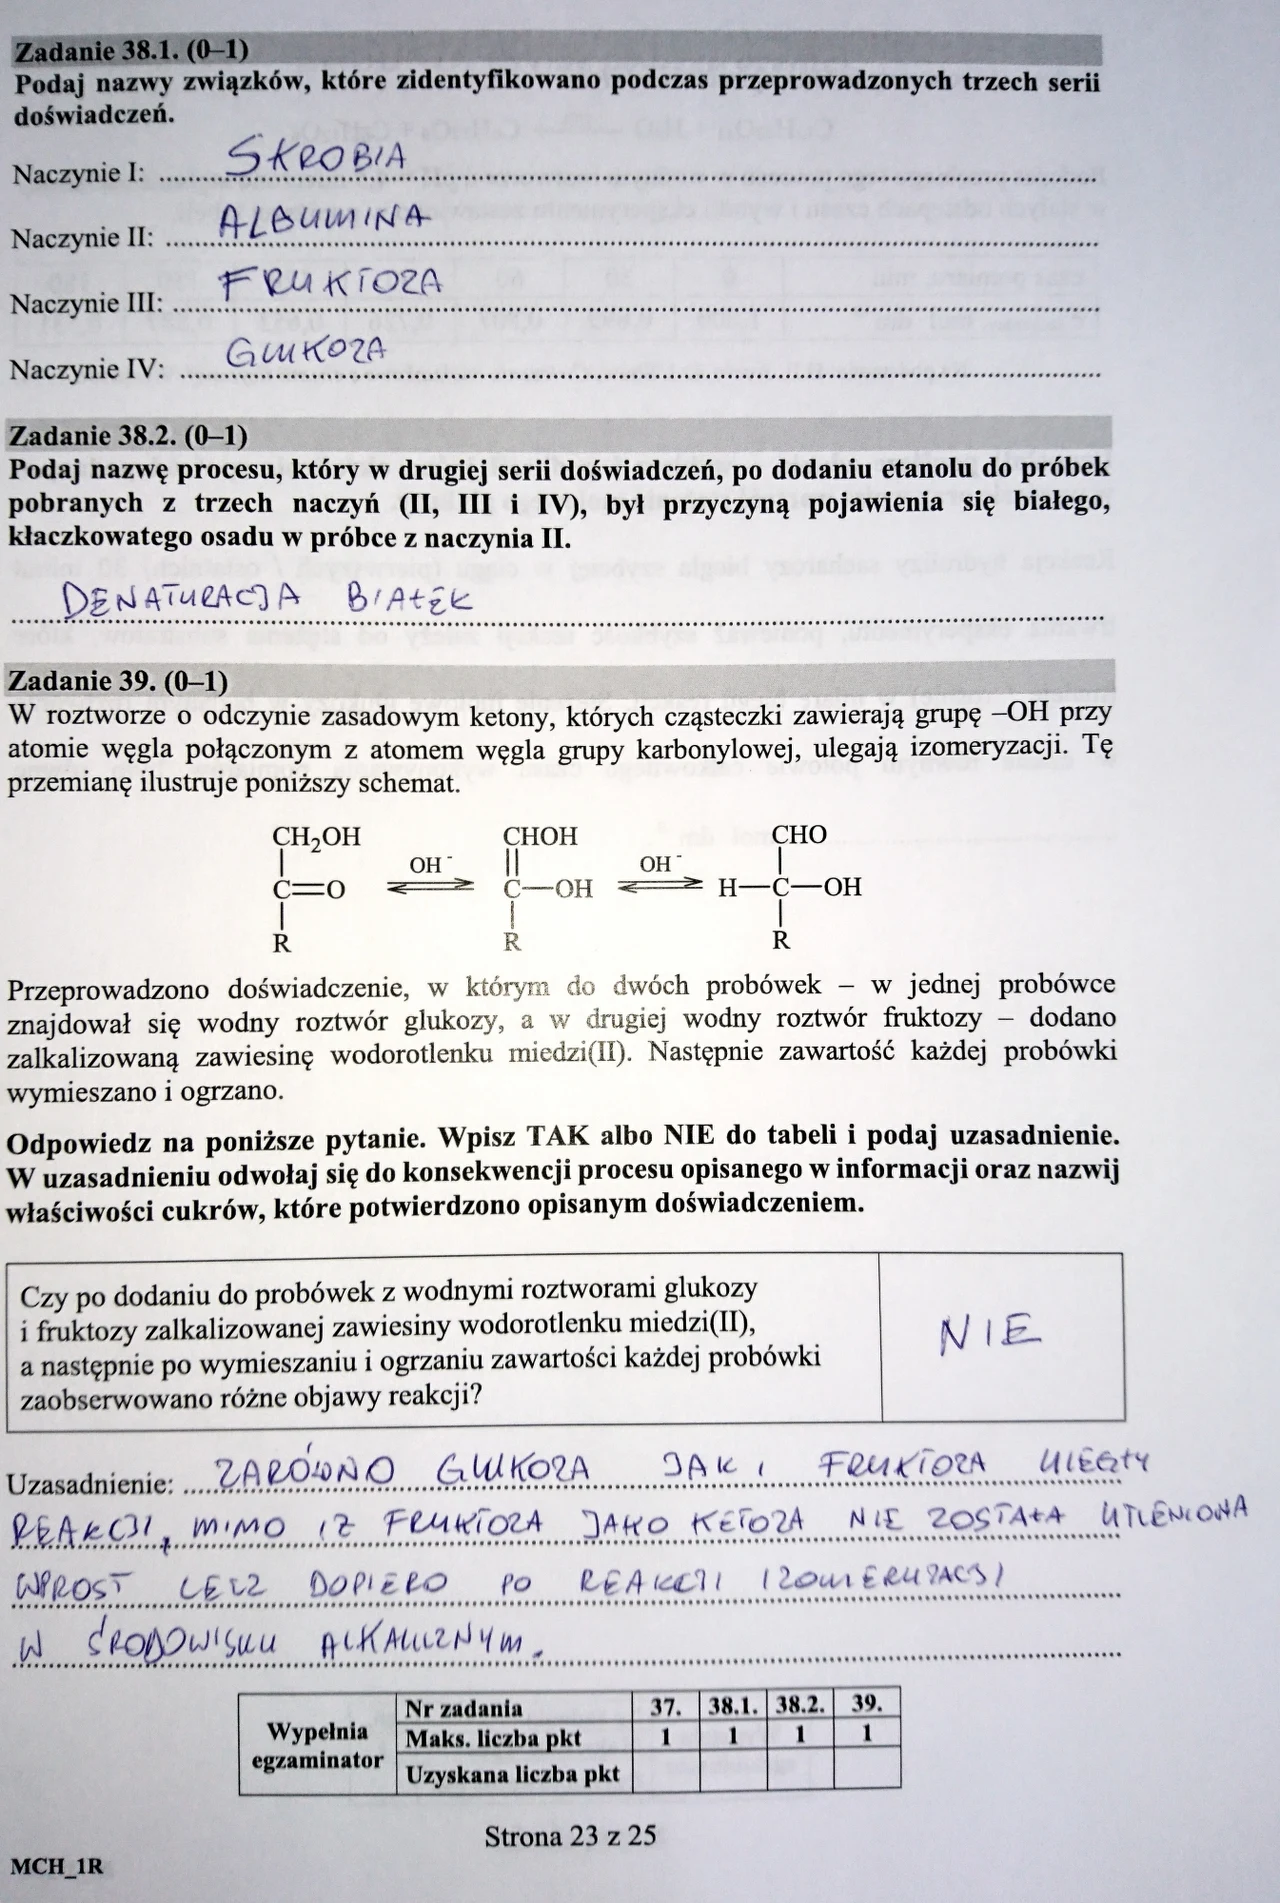 Zadanie 38.1. (0–1)
Podaj nazwy związków, które zidentyfikowano podczas przeprowadzonych trzech serii
doświadczeń.
Naczynie I: SKROBIA
Naczynie II: ALBUMINA
Naczynie III: FRUKTOZA
Naczynie IV: GLUKOZA
Zadanie 38.2. (0–1)
Podaj nazwę procesu, który w drugiej serii doświadczeń, po dodaniu etanolu do próbek
pobranych z trzech naczyń (II, III i IV), był przyczyną pojawienia się białego,
kłaczkowatego osadu w próbce z naczynia II.
DENATURACJA BIAŁEK
Zadanie 39. (0–1)
W roztworze o odczynie zasadowym ketony, których cząsteczki zawierają grupę –OH przy
atomie węgla połączonym z atomem węgla grupy karbonylowej, ulegają izomeryzacji. Tę
przemianę ilustruje poniższy schemat.
CH₂OH CHOH CHO
OH⁻ OH⁻
C=O C—OH H—C—OH
R R R
Przeprowadzono doświadczenie, w którym do dwóch probówek – w jednej probówce
znajdował się wodny roztwór glukozy, a w drugiej wodny roztwór fruktozy – dodano
zalkalizowaną zawiesinę wodorotlenku miedzi(II). Następnie zawartość każdej probówki
wymieszano i ogrzano.
Odpowiedz na poniższe pytanie. Wpisz TAK albo NIE do tabeli i podaj uzasadnienie.
W uzasadnieniu odwołaj się do konsekwencji procesu opisanego w informacji oraz nazwij
właściwości cukrów, które potwierdzono opisanym doświadczeniem.
Czy po dodaniu do probówek z wodnymi roztworami glukozy
i fruktozy zalkalizowanej zawiesiny wodorotlenku miedzi(II),
a następnie po wymieszaniu i ogrzaniu zawartości każdej probówki
zaobserwowano różne objawy reakcji?
NIE
Uzasadnienie: ZARÓWNO GLUKOZA JAK I FRUKTOZA ULEGŁY
REAKCJI, MIMO IŻ FRUKTOZA JAKO KETOZA NIE ZOSTAŁA UTLENIONA
WPROST LECZ DOPIERO PO REAKCJI IZOMERYZACJI
W ŚRODOWISKU ALKALICZNYM.
Wypełnia
egzaminator
Nr zadania 37. 38.1. 38.2. 39.
Maks. liczba pkt 1 1 1 1
Uzyskana liczba pkt
Strona 23 z 25
MCH_1R